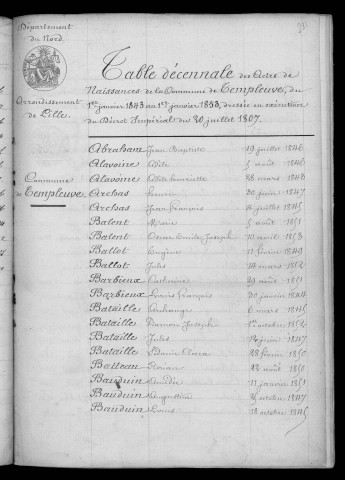 Département
du Nord.
Arrondissement
de Lille.
Commune
de Templeuve
Table décennale des Actes de
Naissances de la Commune de Templeuve, du
1er janvier 1843 au 1er janvier 1853, dressée en exécution
du Décret Impérial du 20 juillet 1807.
Abraham Jean Baptiste 19 juillet 1846
Alavoine Adèle 5 août 1846
Alavoine Adèle henriette 28 mars 1848
Archas 30 juin 1847
Archas Jean François juillet 1845
Batent Marie août 1851
Batent Oscar Emile Joseph 10 août 1853
Ballot Eugène 11 février 1849
Ballot Jules 14 mars 1852
Barbieux Catherine 29 août 1851
Barbieux Louis François 30 janvier 1844
Bataille Archange 6 mars 1845
Bataille Joseph 1er octobre 1852
Bataille Jules juin 1847
Bataille Clara 28 février 1850
Batteau Florian août 1850
Bauduin 11 janvier 1851
Bauduin Augustine octobre 1847
Bauduin Louis 18 octobre 1845